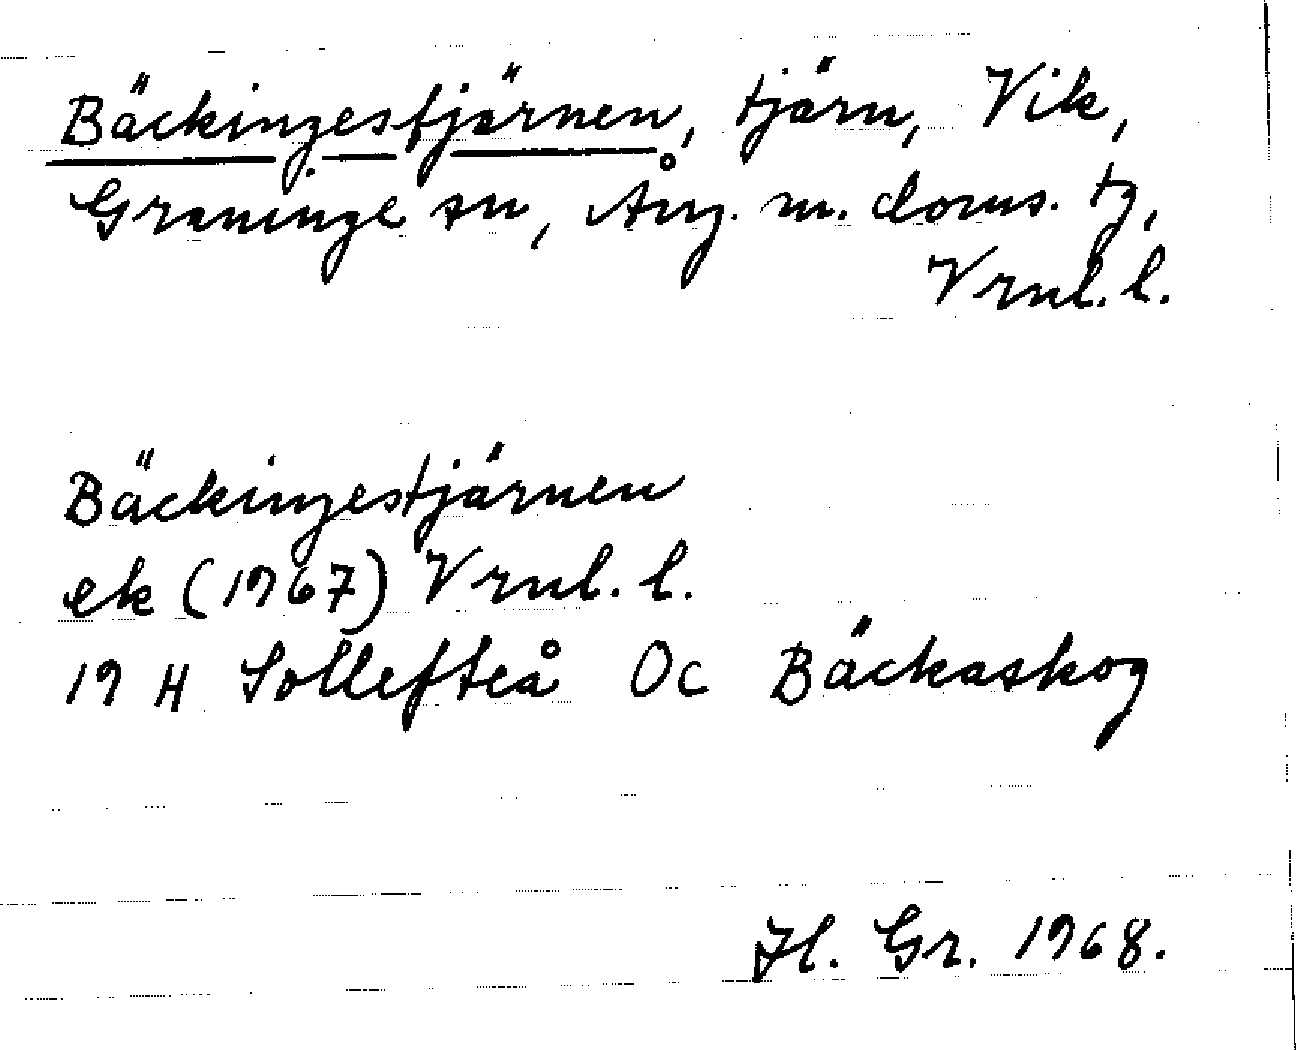 Bäckingestjärnen, tjärn, Vik,
Graninge sn, Ång. m. doms. tg,
Vrnl. l.
Bäckingestjärnen
ek (1967) Vrnl. l.
19 H Sollefteå Oc Bäckaskog
Hl. Gr. 1968.